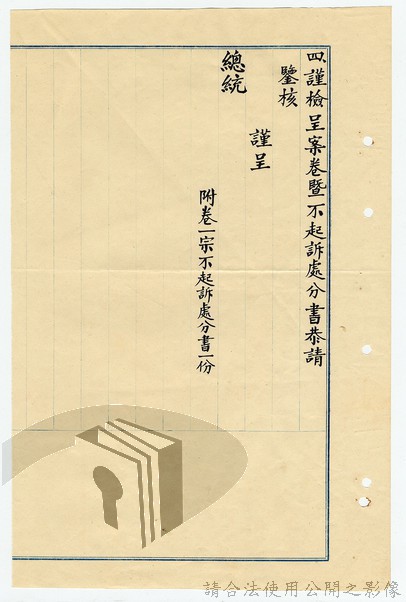 四、謹檢呈案卷暨不起訴處分書恭請
鑒核
謹呈
總統
附卷一宗不起訴處分書一份
請合法使用公開之影像